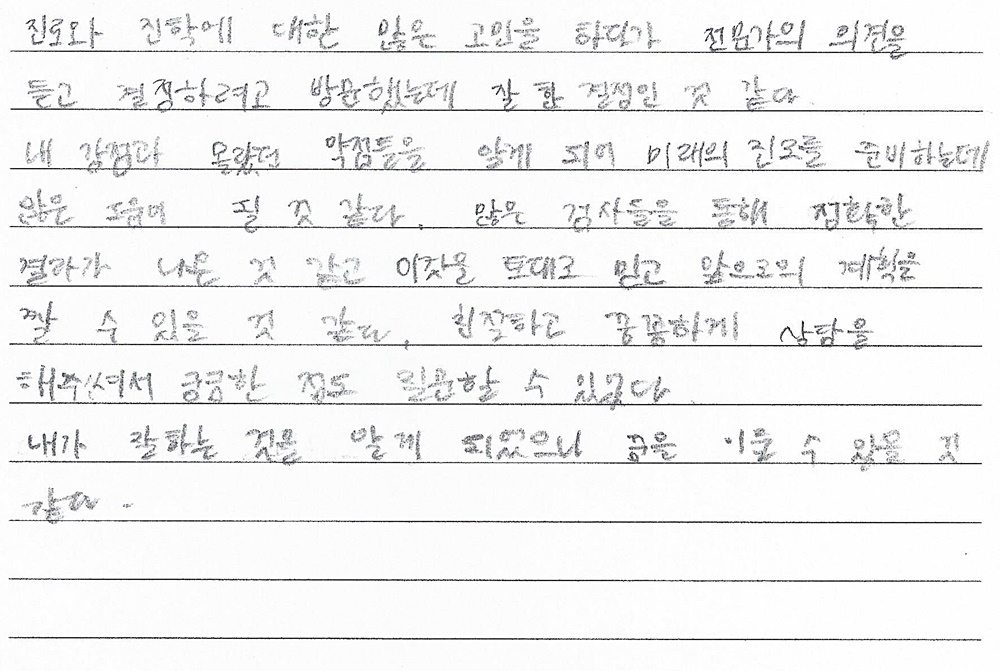 진로와 진학에 대한 많은 고민을 하다가 전문가의 의견을
듣고 결정하려고 방문했는데 잘 한 결정인 것 같다.
내 강점과 몰랐던 약점들을 알게 되어 미래의 진로를 준비하는데
많은 도움이 될 것 같다. 많은 검사들을 통해 정확한
결과가 나온 것 같고 이것을 토대로 믿고 앞으로의 계획을
짤 수 있을 것 같다. 친절하고 꼼꼼하게 상담을
해주셔서 궁금한 점도 질문할 수 있었다
내가 잘하는 것을 알게 되었으니 꿈을 이룰 수 있을 것
같다.